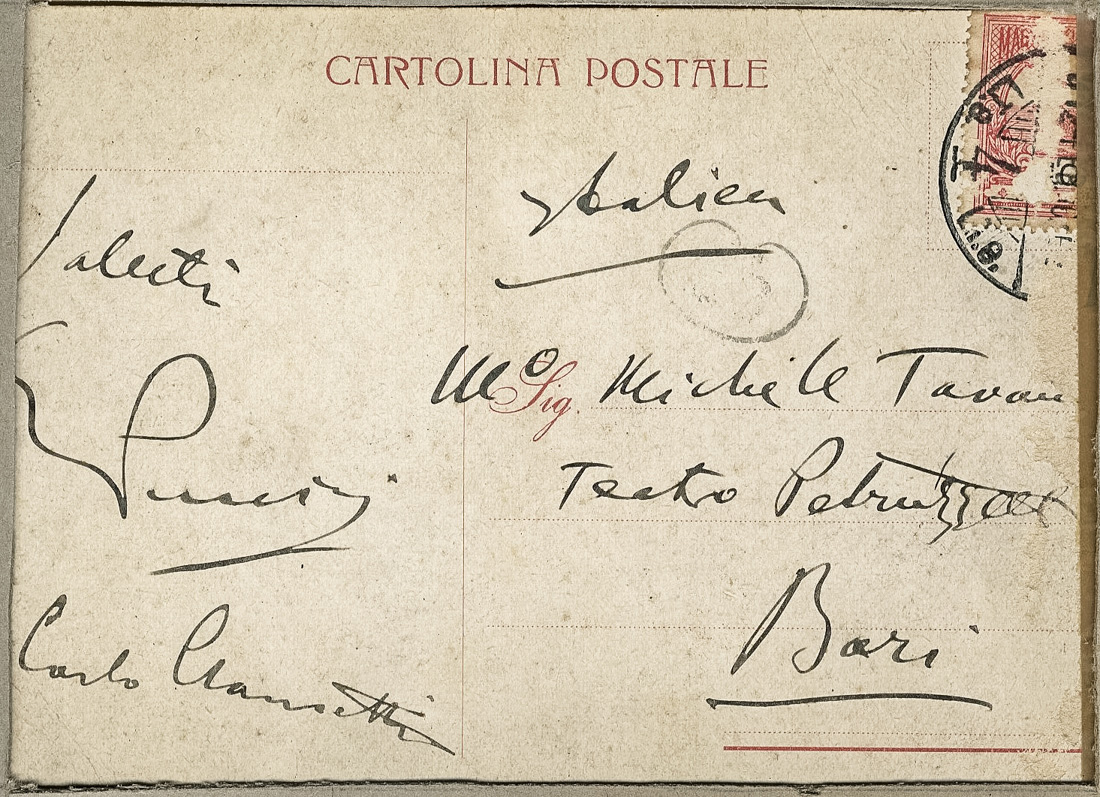 CARTOLINA POSTALE
MAG
Italien
Saluti
Puccini
Carlo Clausetti
Mo Sig. Michele Tavan
Teatro Petruzzelli
Bari